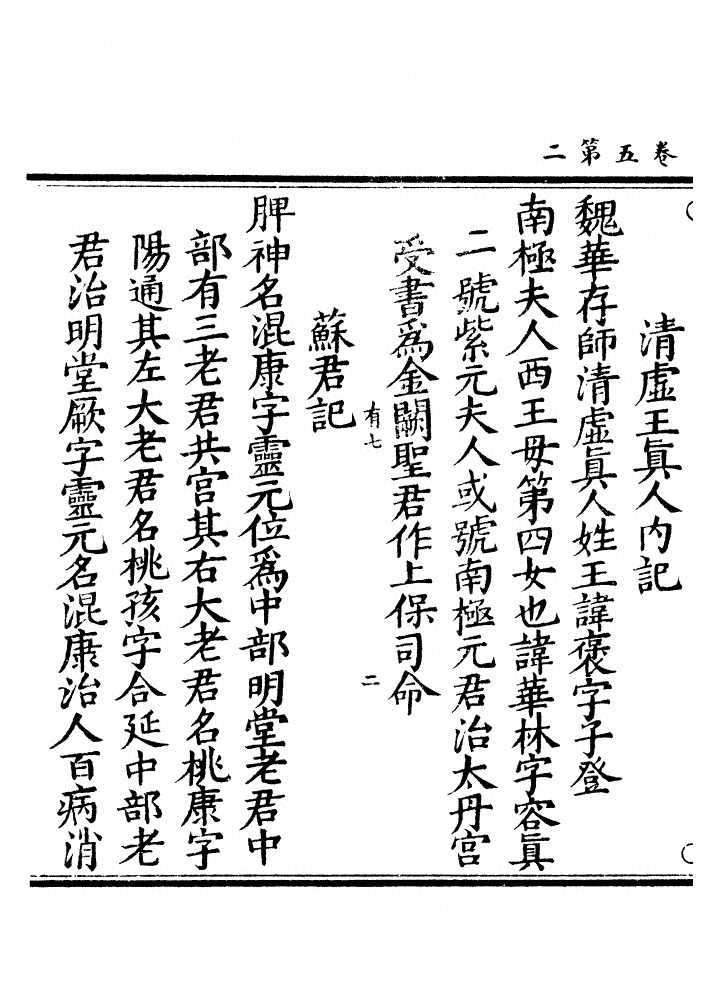 卷五第二
清虛王眞人內記
魏華存師清虛眞人姓王諱褒字子登
南極夫人西王母第四女也諱華林字容眞
一號紫元夫人或號南極元君治太丹宮
受書爲金闕聖君作上保司命
有七 二
蘇君記
脾神名混康字靈元位爲中部明堂老君中
部有三老君共宮其右大老君名桃康字
陽通其左大老君名桃孩字合延中部老
君治明堂厥字靈元名混康治人百病消